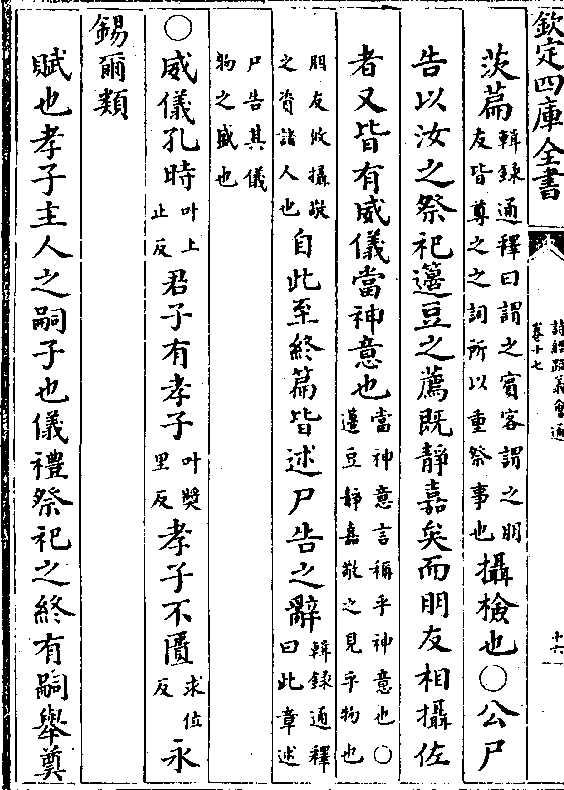 欽定四庫全書
詩經疏義會通
卷十七
十六
茨篇輯錄通釋曰謂之賓客謂之朋友皆尊之之詞所以重祭事也攝檢也○公尸
告以汝之祭祀籩豆之薦既靜嘉矣而朋友相攝佐
者又皆有威儀當神意也當神意言稱乎神意也○籩豆靜嘉敬之見乎物也
朋友攸攝敬之資諸人也自此至終篇皆述尸告之辭輯錄通釋曰此章述
尸告其儀物之盛也
○威儀孔時叶上止反君子有孝子叶獎里反孝子不匱求位反永
錫爾類
賦也孝子主人之嗣子也儀禮祭祀之終有嗣舉奠